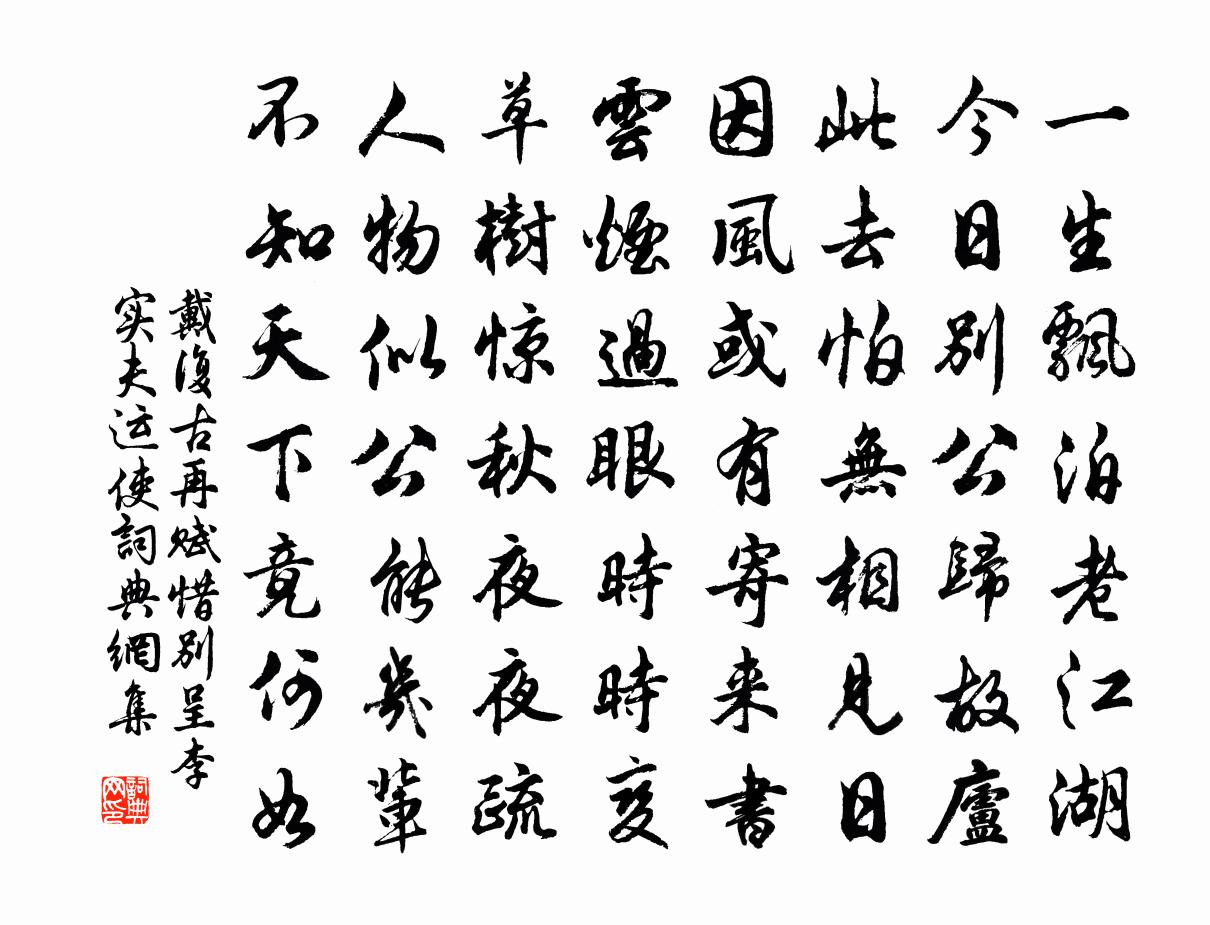 一生飄泊老江湖
今日别公歸故廬
此去怕無相見日
因風或有寄来書
雲煙過眼時時变
草樹惊秋夜夜疏
人物似公能幾輩
不知天下竟何如
戴復古再赋惜别呈李
实夫运使詞典網集
詞典
网印